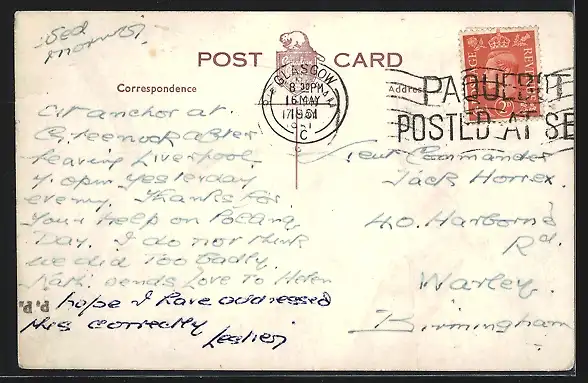 Wed
morning.
POST CARD
Correspondence
Address
GLASGOW
8 30 PM
16 MAY
1951
C
PAQUEBOT
POSTED AT SE
POSTAGE REVENUE
At anchor at
Greenock after
leaving Liverpool
4.0pm yesterday
evening. Thanks for
your help on Polling
Day. I do not think
we did too badly.
Kath. sends love to Helen
P.P. hope I have addressed
this correctly Leslie
Lieut Commander
Jack Horrex.
40. Harborne
Rd.
Warley.
Birmingham